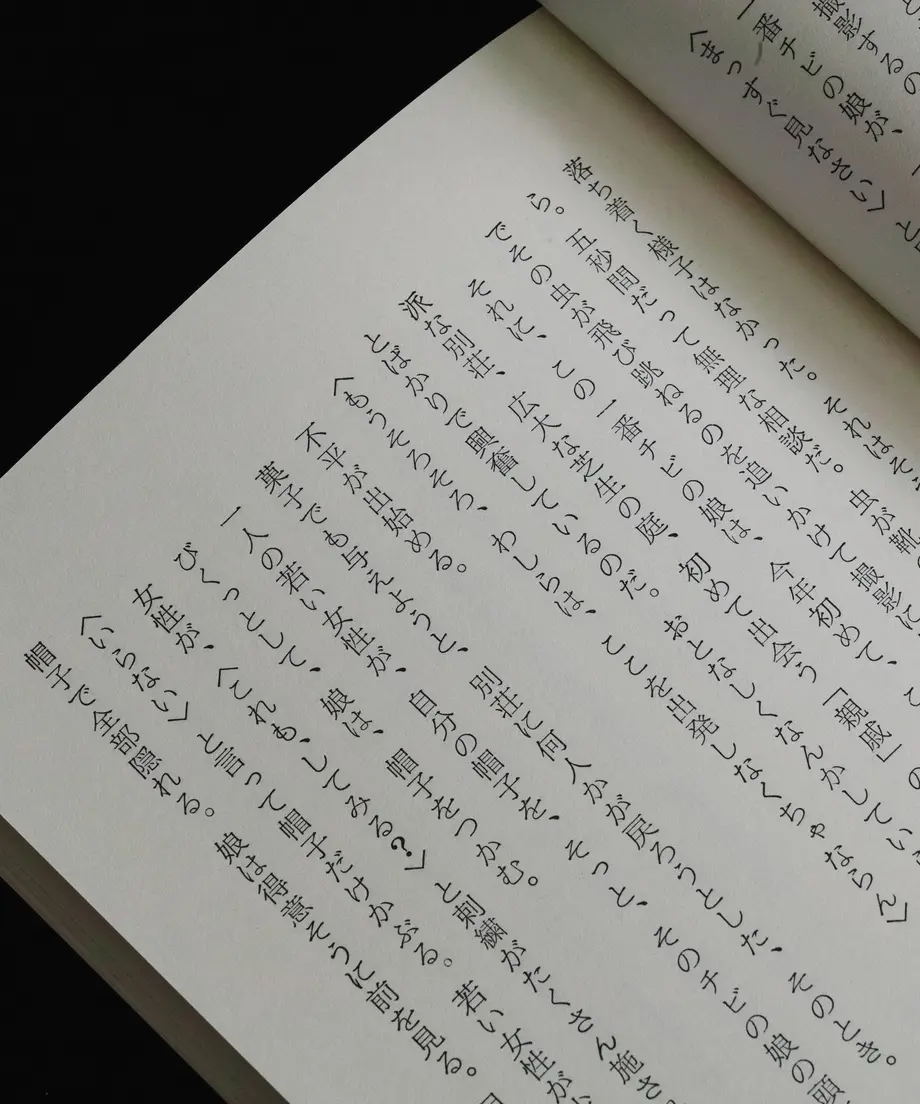 撮影するの
一番チビの娘が、
〈まっすぐ見なさい〉と
落ち着く様子はなかった。それはそ
ら。五秒間だって無理な相談だ。虫が靴
でその虫が飛び跳ねるのを追いかけて撮影に
それに、この一番チビの娘は、今年初めて、この
派な別荘、広大な芝生の庭、初めて出会う「親戚」
とばかりで興奮しているのだ。おとなしくなんかしてい
〈もうそろそろ、わしらは、ここを出発しなくちゃならん〉
不平が出始める。
菓子でも与えようと、別荘に何人かが戻ろうとした、そのとき。
一人の若い女性が、自分の帽子を、そっと、そのチビの娘の頭
びくっとして、娘は、帽子をつかむ。
女性が、〈これも、してみる?〉と刺繍がたくさん施さ
〈いらない〉と言って帽子だけかぶる。若い女性が
帽子で全部隠れる。娘は得意そうに前を見る。